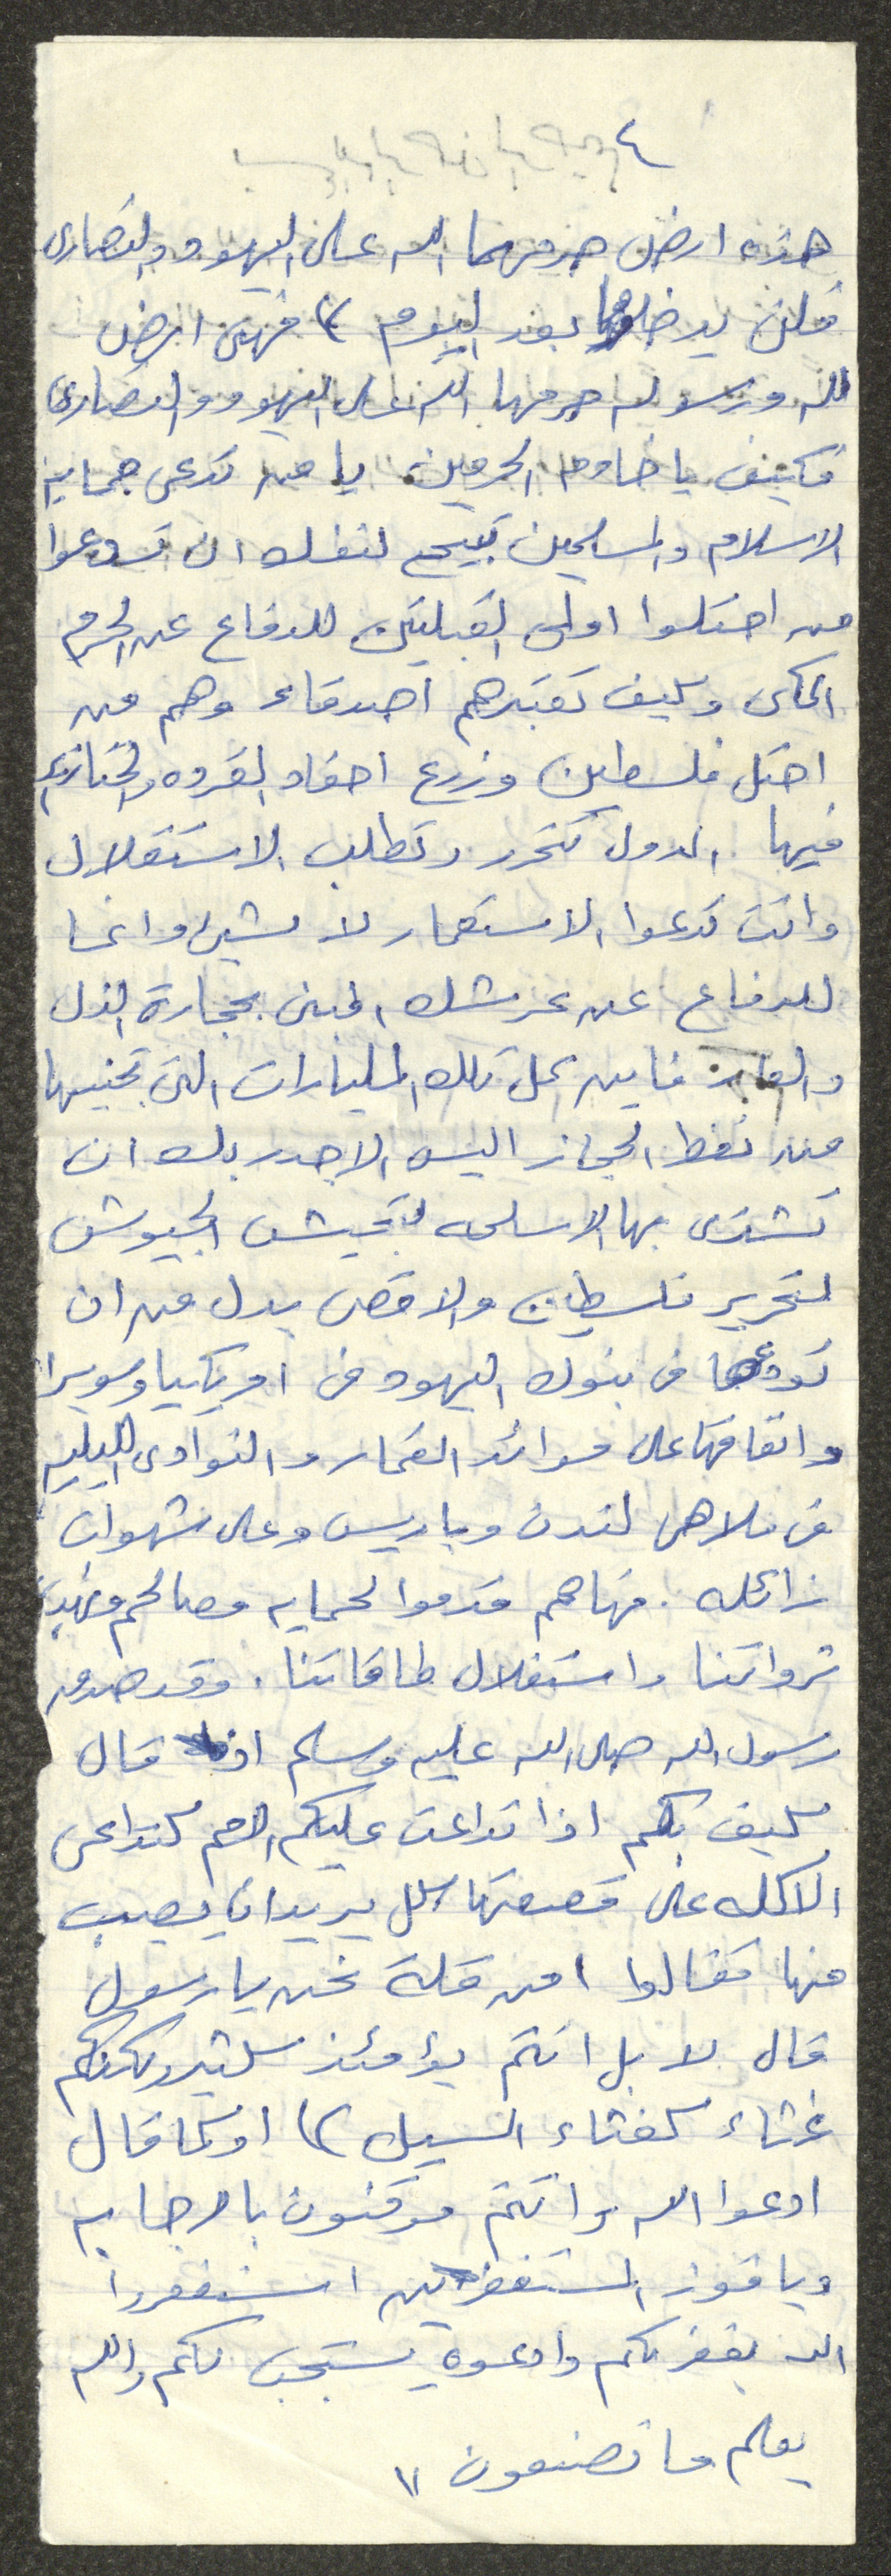 ٤
هذه ارض حرمها الله على اليهود والنصارى
فلن يدخلوها بعد اليوم )) فهي ارض
الله ورسوله حرمها الله على اليهود والنصارى
فكيف يا خادم الحرمين يا من تدعى حمايه
الاسلام والمسلمين تبيح لنفسك ان تدعوا
من احتلوا اولى القبلتين للدفاع عن الحرم
المكى وكيف تعتبرهم اصدقاء وهم من
احتل فلسطين وزرع احفاد القرده والخنازير
فيها . الدول تتحرر وتطلب الاستقلال
وانت تدعوا الاستعمار لا لشيئ وانما
للدفاع عن عرشك المبنى بحجارة الذل
والعار فاين كل تلك المليارات التى تجنيها
من نفط الحجاز اليس الاجدر بك ان
تشترى بها الاسلحه لتجيش الجيوش
لتحرير فلسطين والاقصى بدل من ان
تودعها فى بنوك اليهود فى امريكيا وسويسرا
وانفاقها على موائد القمار و النوادى الليليه
فى ملاهى لندن وباريس وعلى شهوات
زائله . فها هم قدموا لحمايه مصالحهم ونهب
ثرواتنا واستغلال طاقاتنا . وقد صدق
رسول الله صلى الله عليه وسلم اذ قال
كيف بكم اذا تداعت عليكم الامم كتداعى
الاكله على قصعتها كل يريد ان يصيب
منها فقالوا امن قلة نحن يا رسول
قال لا بل انتم يؤمئذ كثير ولكنكم
غثاء كغثاء السيل )) او كما قال
ادعوا الله وانتم موقنون بالاجابه
ويا فوز المستغفرين استغفروا
الله يغفر لكم وادعوه يستجب لكم والله
يعلم ما تصنعون ))